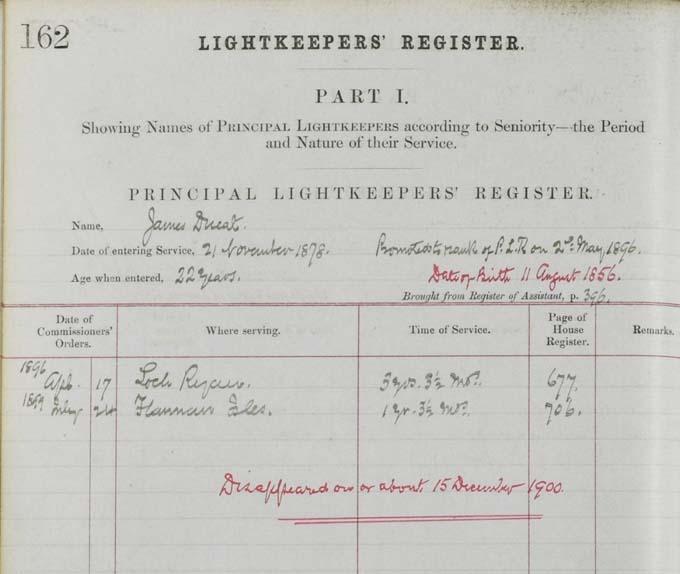 162
LIGHTKEEPERS' REGISTER.
PART I.
Showing Names of PRINCIPAL LIGHTKEEPERS according to Seniority—the Period
and Nature of their Service.
PRINCIPAL LIGHTKEEPERS' REGISTER.
Name, James Ducat.
Date of entering Service, 21 November 1878. Promoted to rank of P.L.K on 2nd May 1896.
Age when entered, 22 years. Date of Birth 11 August 1856.
Brought from Register of Assistant, p. 396.
Date of Commissioners' Orders. Where serving. Time of Service. Page of House Register. Remarks.
1896 Apl. 17 Loch Ryan. 3 yrs. 3½ Mos. 677.
1899 July 24 Flannan Isles. 1 yr. 3½ Mos. 706.
Disappeared on or about 15 December 1900.